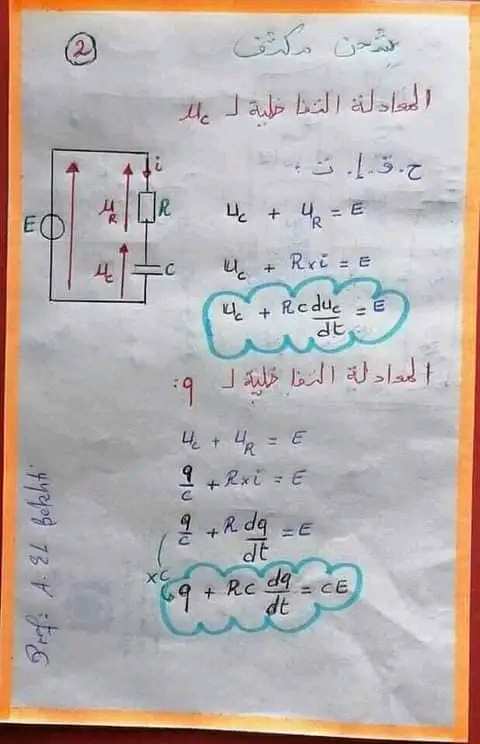 2
شحن مكثف
المعادلة التفاضلية لـ uc
ح.ق.إ.ت :
E
uR
R
i
uc
C
uc + uR = E
uc + R×i = E
uc + RC duc/dt = E
المعادلة التفاضلية لـ q:
uc + uR = E
q/c + R×i = E
q/c + R dq/dt = E
×c
q + RC dq/dt = CE
Prof: A. EL Bekhti